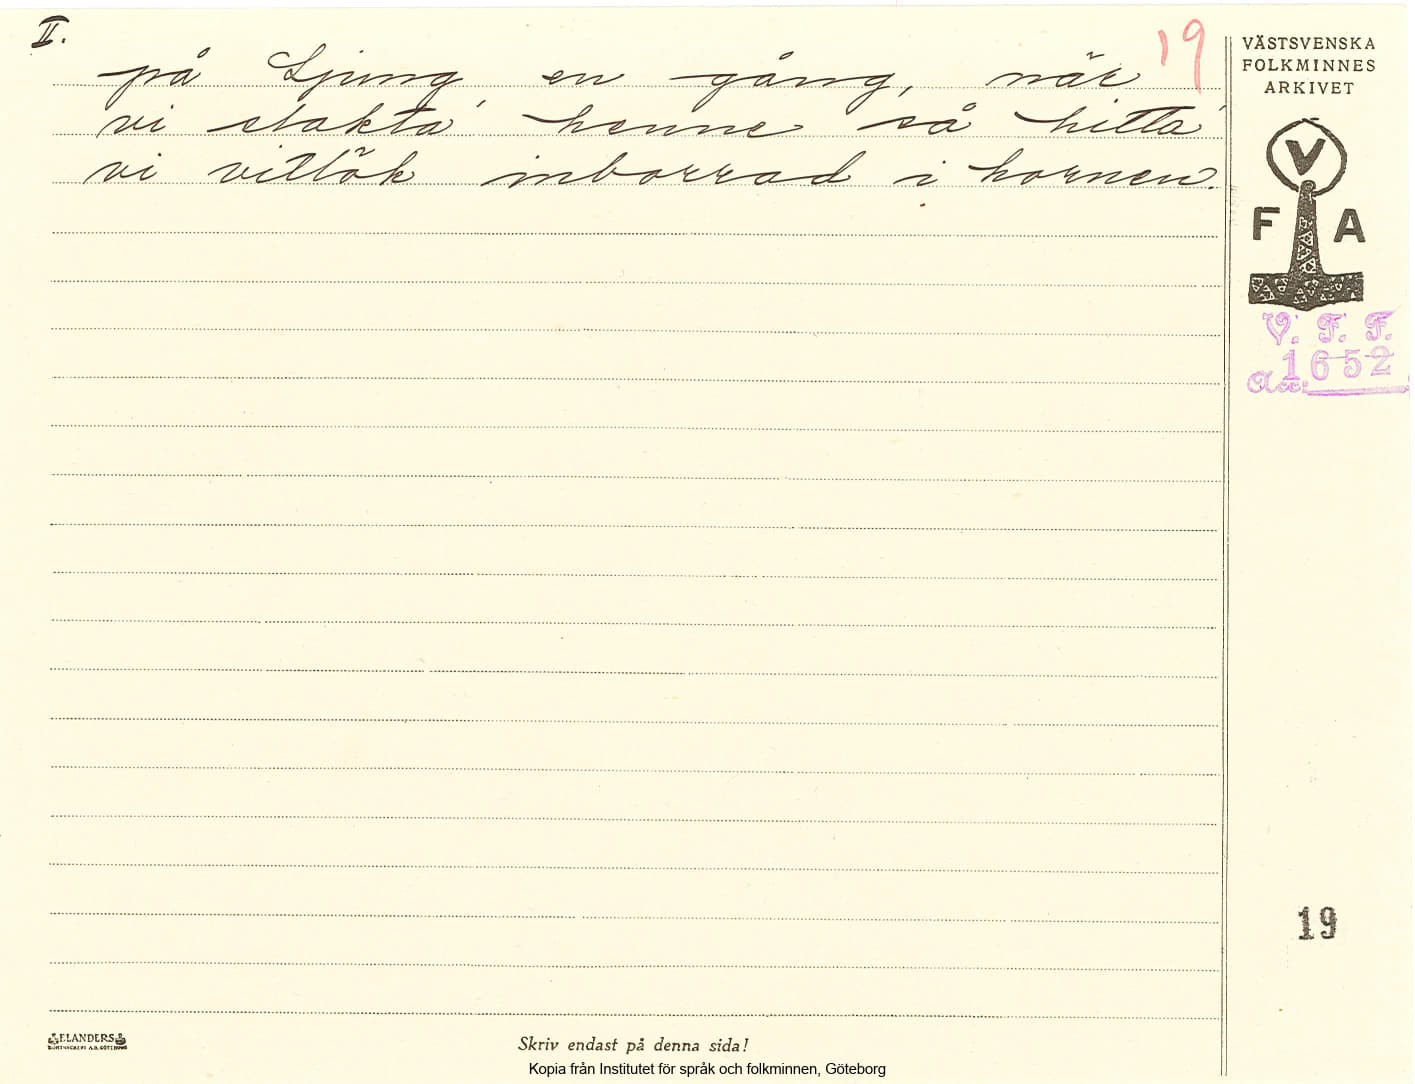 II.
19
på Ljung en gång, när
vi slakta' henne så hitta'
vi vitlök inborrad i hornen.
VÄSTSVENSKA
FOLKMINNES
ARKIVET
V
F A
V. F. F.
Acc: 1652
19
ELANDERS
Skriv endast på denna sida!
Kopia från Institutet för språk och folkminnen, Göteborg